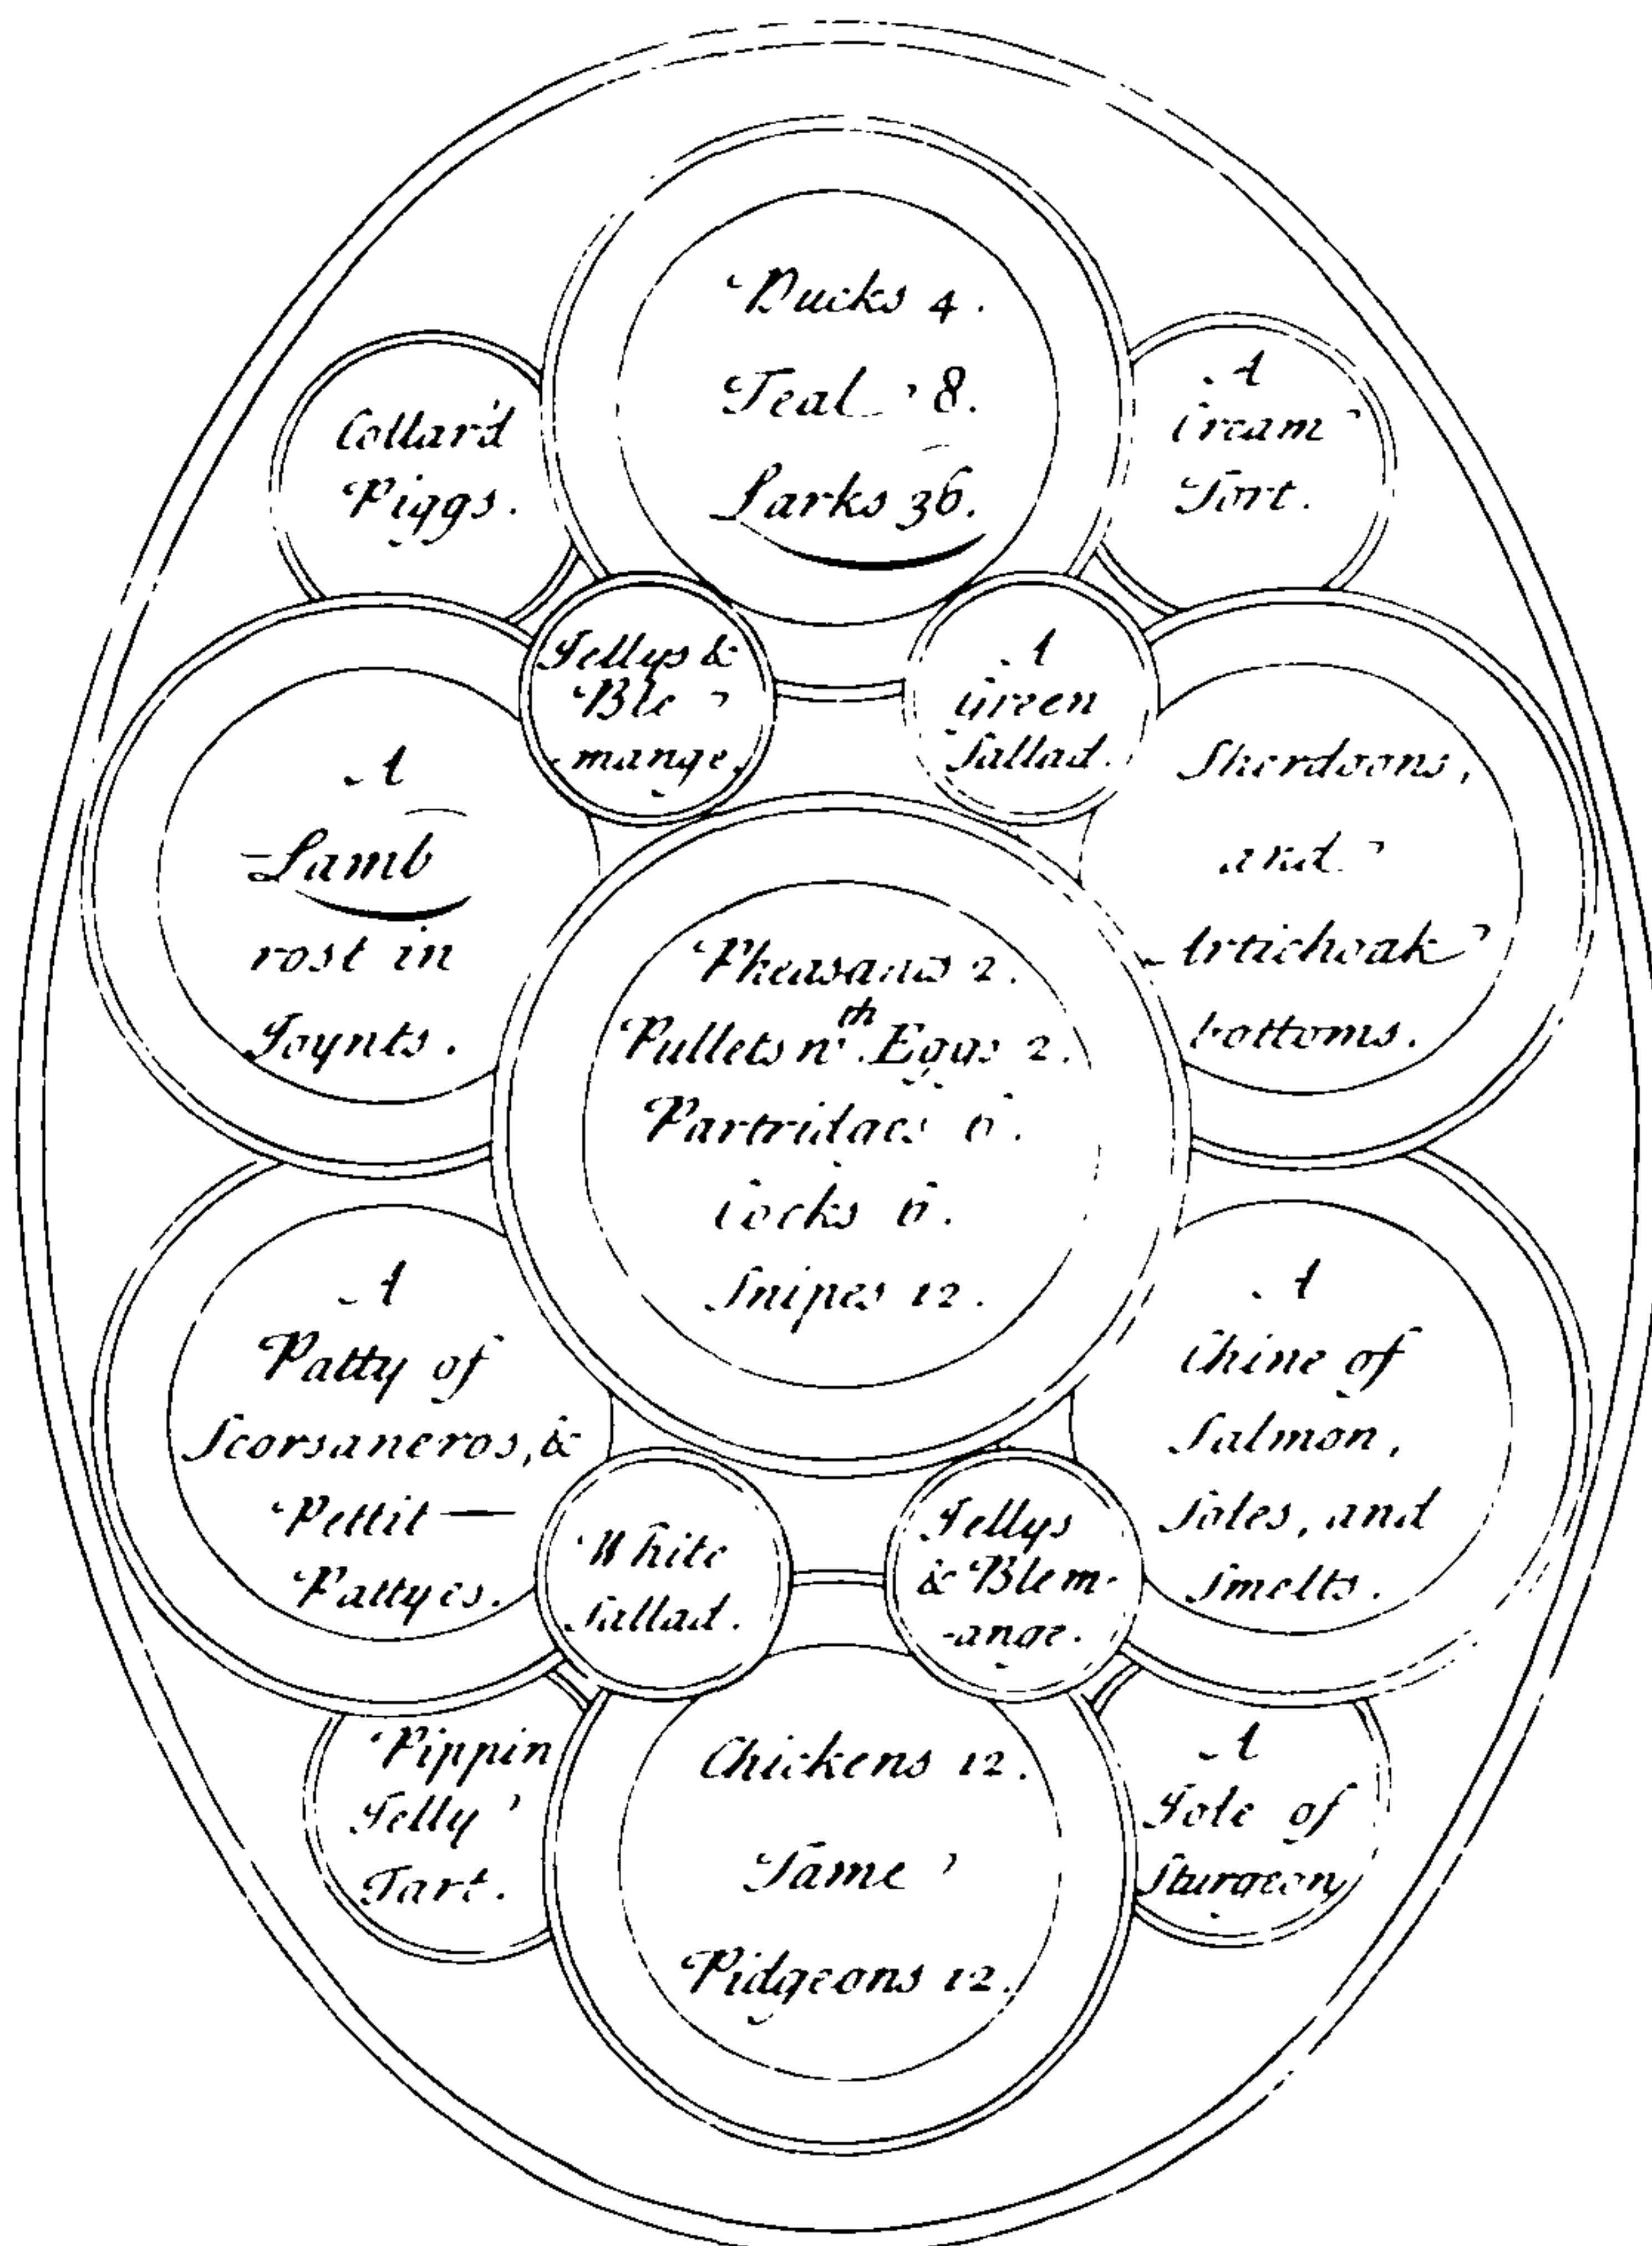 Ducks 4.
Teal 8.
Larks 36.
Collar'd
Piggs.
A
Cream
Tort.
Jellys &
Ble
mange.
A
Green
Sallad.
A
Lamb
rost in
Joynts.
Sherdoons,
and
Artichoak
bottoms.
Pheasants 2.
Pullets wth. Eggs 2.
Partridges 6.
Cocks 6.
Snipes 12.
A
Patty of
Scorsaneros, &
Pettit —
Pattyes.
A
Chine of
Salmon,
Soles, and
Smelts.
White
Sallad.
Jellys
& Blem-
-ange.
Pippin
Jelly
Tart.
Chickens 12.
Tame
Pidgeons 12.
A
Jole of
Sturgeon